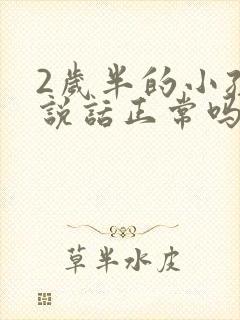 2歲半的小孩
說話正常嗎
草半水皮